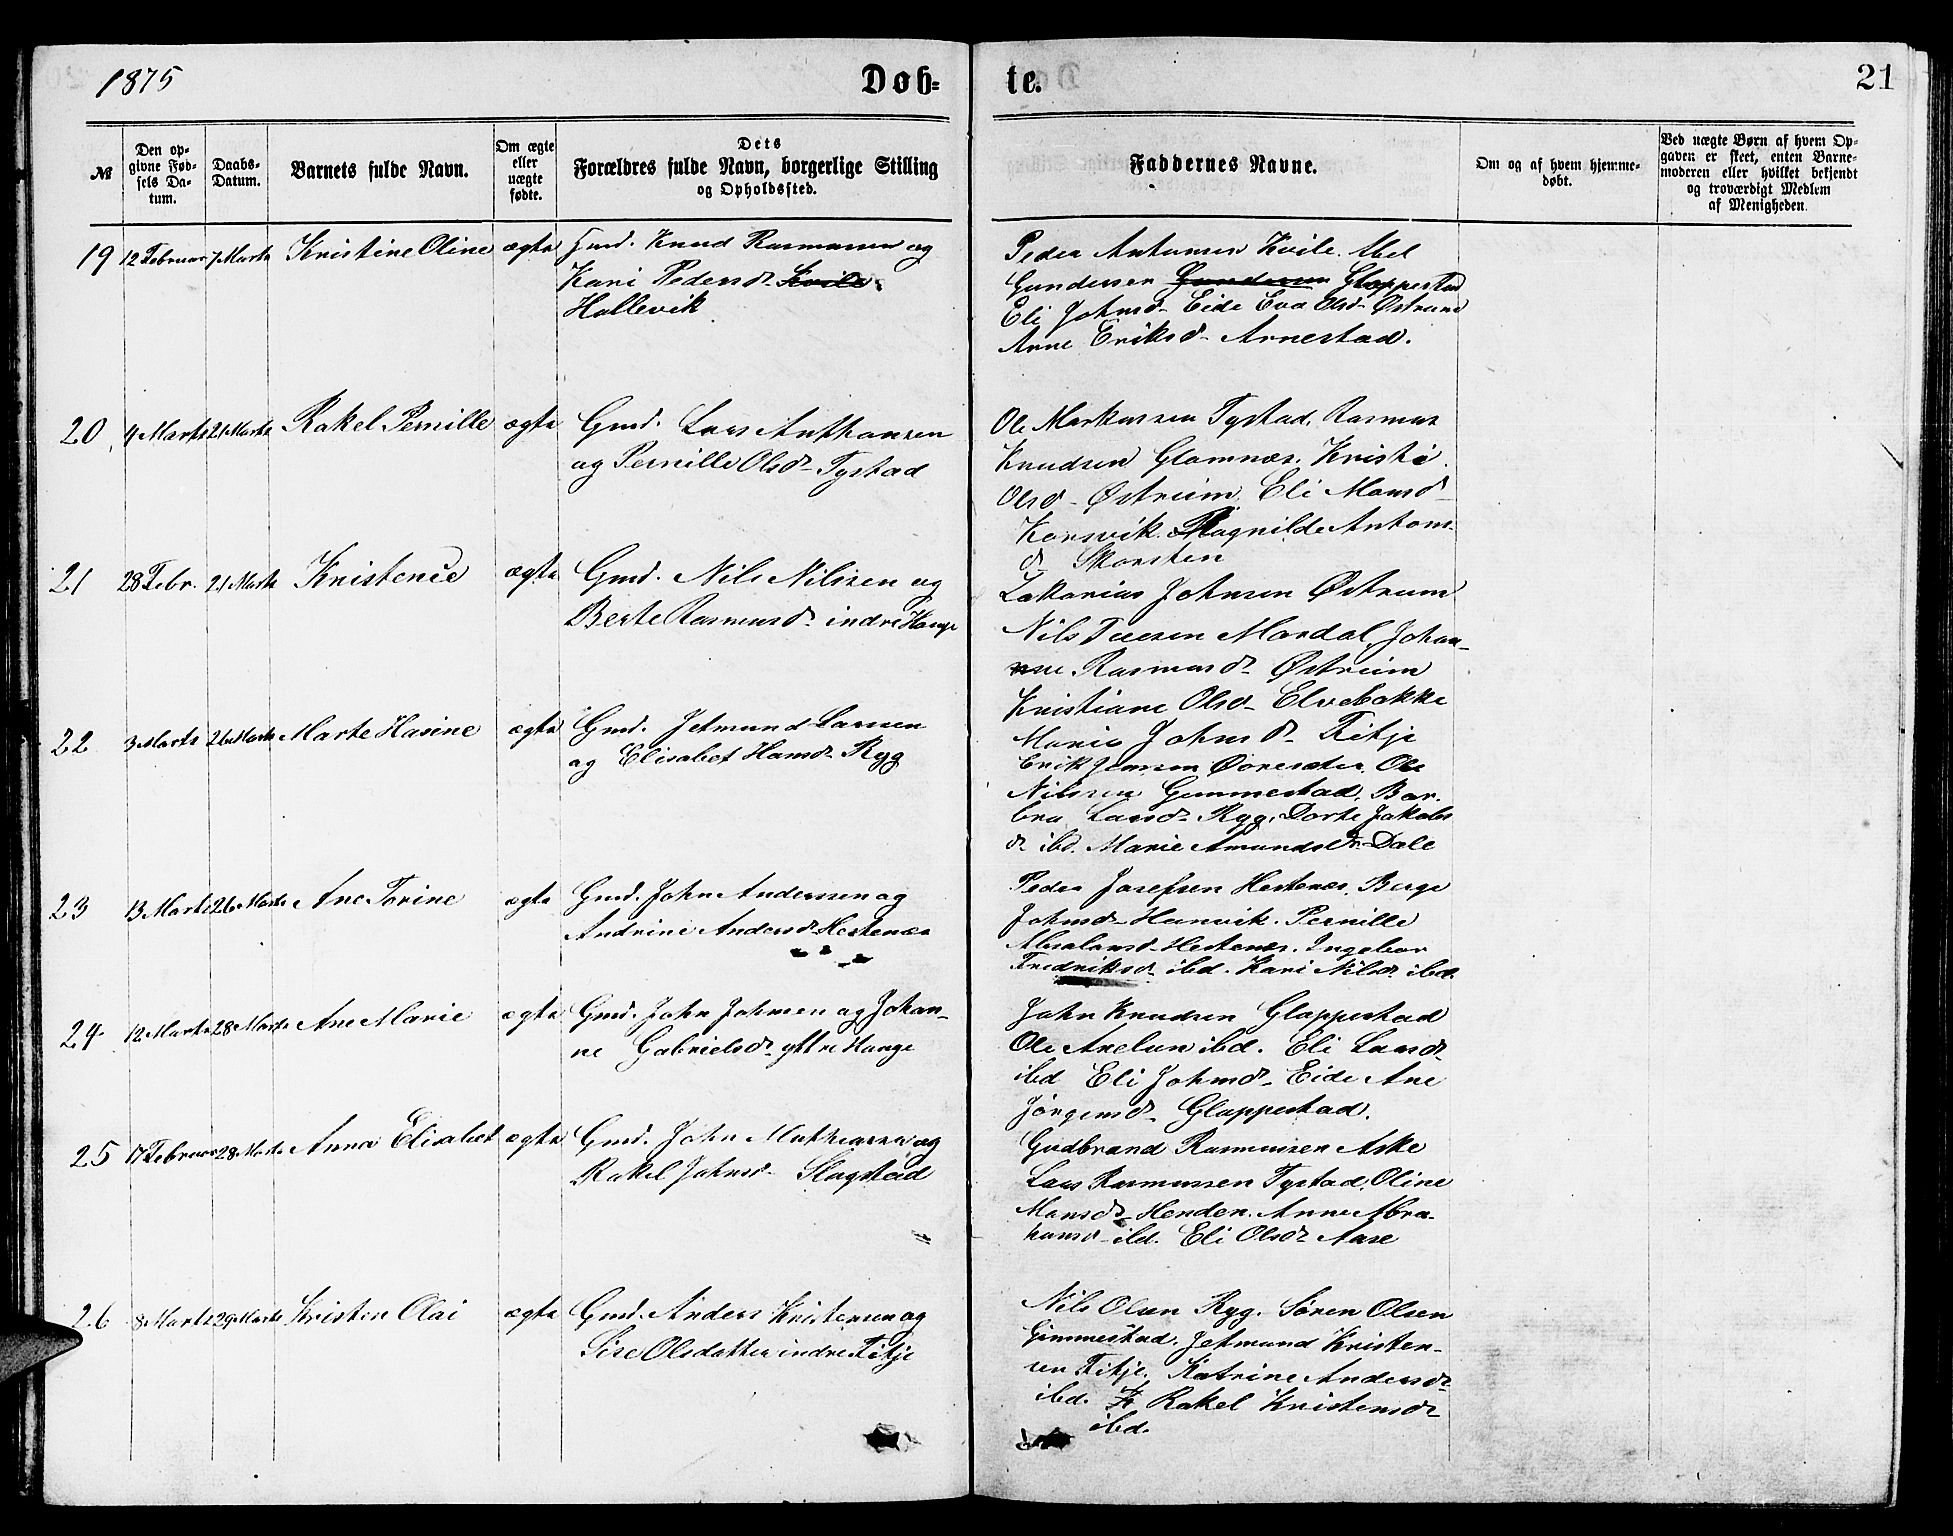 1875
Døb-
te.
21
№
Den op-
givne Fød-
sels Da-
tum.
Daabs-
Datum.
Barnets fulde Navn.
Om ægte
eller
uægte
fødte.
Dets
Forældres fulde Navn, borgerlige Stilling
og Opholdssted.
Faddernes Navne.
Om og af hvem hjemme-
døbt.
Ved uægte Børn af hvem Op-
gaven er skeet, enten Barne-
moderen eller hvilket bekjendt
og troværdigt Medlem
af Menigheden.
19 12 Februar 7 Marts Kristine Oline ægte Gmd. Knud Rasmussen og
Kari Pedersd. Kvile
Hallevik
Peder Antonsen Kvile. Abel
Gundersen Gundersen Gloppestad
Eli Johnsd. Eide Eva Olsd. Østrem
Anne Eriksd. Arnestad.
20 4 Marts 21 Marts Rakel Pernille ægte Gmd. Lars Anthonsen
og Pernille Olsd. Tystad
Ole Markussen Tystad, Rasmus
Knudsen Glomnæs. Kristi
Olsd. Østreim, Eli Monsd
Korsvik. Ragnilde Antons-
d. Skorsten
21 28 Febr. 21 Marts Kristence ægte Gmd. Nils Nilssen og
Berte Rasmusd. indre Hauge
Zakarias Johnsen Østreim
Nils Mardal, Johan-
ne Rasmusd. Østreim
Kristiane Olsd. Elvebakke
Marie Johnsd. Fitje
22 3 Marts 26 Marts Marte Hasine ægte Gmd. Jetmund Larsen
og Elisabet Hansd. Ryg
Erik Jensen Ole
Nilssen Gemmestad, Bar-
bra Larsd. Ryg, Dorte Jakobs
d. ibd. Marie Amundsd. Dale
23 13 Marts 26 Marts Ane Torine ægte Gmd. John Anderssen og
Andrine Andersd. Hestenæs
Peder Josefsen Hestenæs, Berge
Johnsd. Hunvik. Pernille
Absalonsd. Hestenæs. Ingebor
Fredriksd. ibd. Kari Nilsd. ibd.
24 12 Marts 28 Marts Ane Marie ægte Gmd. John Johnsen og Johan-
ne Gabrielsd. yttre Hauge
John Knudsen Gloppestad
Ole Anelun ibd. Eli Larsd.
ibd Eli Johnsd. Eide Ane
Jørgensd. Gloppestad.
25 17 Februar 28 Marts Anna Elisabet ægte Gmd. John Mathiassen og
Rakel Johnsd. Slagstad
Gudbrand Rasmussen Aske
Lars Rasmussen Tystad, Oline
Monsd. Henden. Anne Abra-
hamsd. ibd. Eli Olsd. Aase
26 8 Marts 29 Marts Kristen Olai ægte Gmd. Anders Kristensen og
Sise Olsdatter indre Fitje
Nils Olsen Ryg. Søren Olsen
Gimmestad. Jetmund Kristen-
sen Fitje. Katrine Andersd.
ibd. Rakel Kristensd.
ibd.